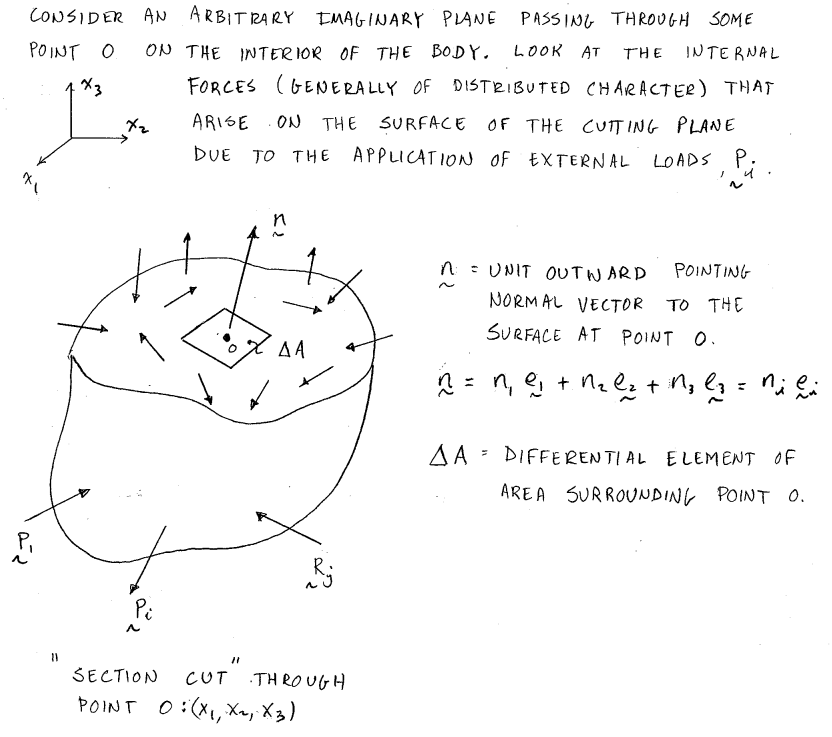 CONSIDER AN ARBITRARY IMAGINARY PLANE PASSING THROUGH SOME
POINT O ON THE INTERIOR OF THE BODY. LOOK AT THE INTERNAL
FORCES (GENERALLY OF DISTRIBUTED CHARACTER) THAT
ARISE ON THE SURFACE OF THE CUTTING PLANE
DUE TO THE APPLICATION OF EXTERNAL LOADS, P̰ᵢ.
x₃
x₂
x₁
ṋ
O
ΔA
ṋ = UNIT OUTWARD POINTING
NORMAL VECTOR TO THE
SURFACE AT POINT O.
ṋ = n₁ ḛ₁ + n₂ ḛ₂ + n₃ ḛ₃ = nᵢ ḛᵢ
ΔA = DIFFERENTIAL ELEMENT OF
AREA SURROUNDING POINT O.
P̰₁
P̰ᵢ
R̰ⱼ
"SECTION CUT" THROUGH
POINT O:(x₁, x₂, x₃)